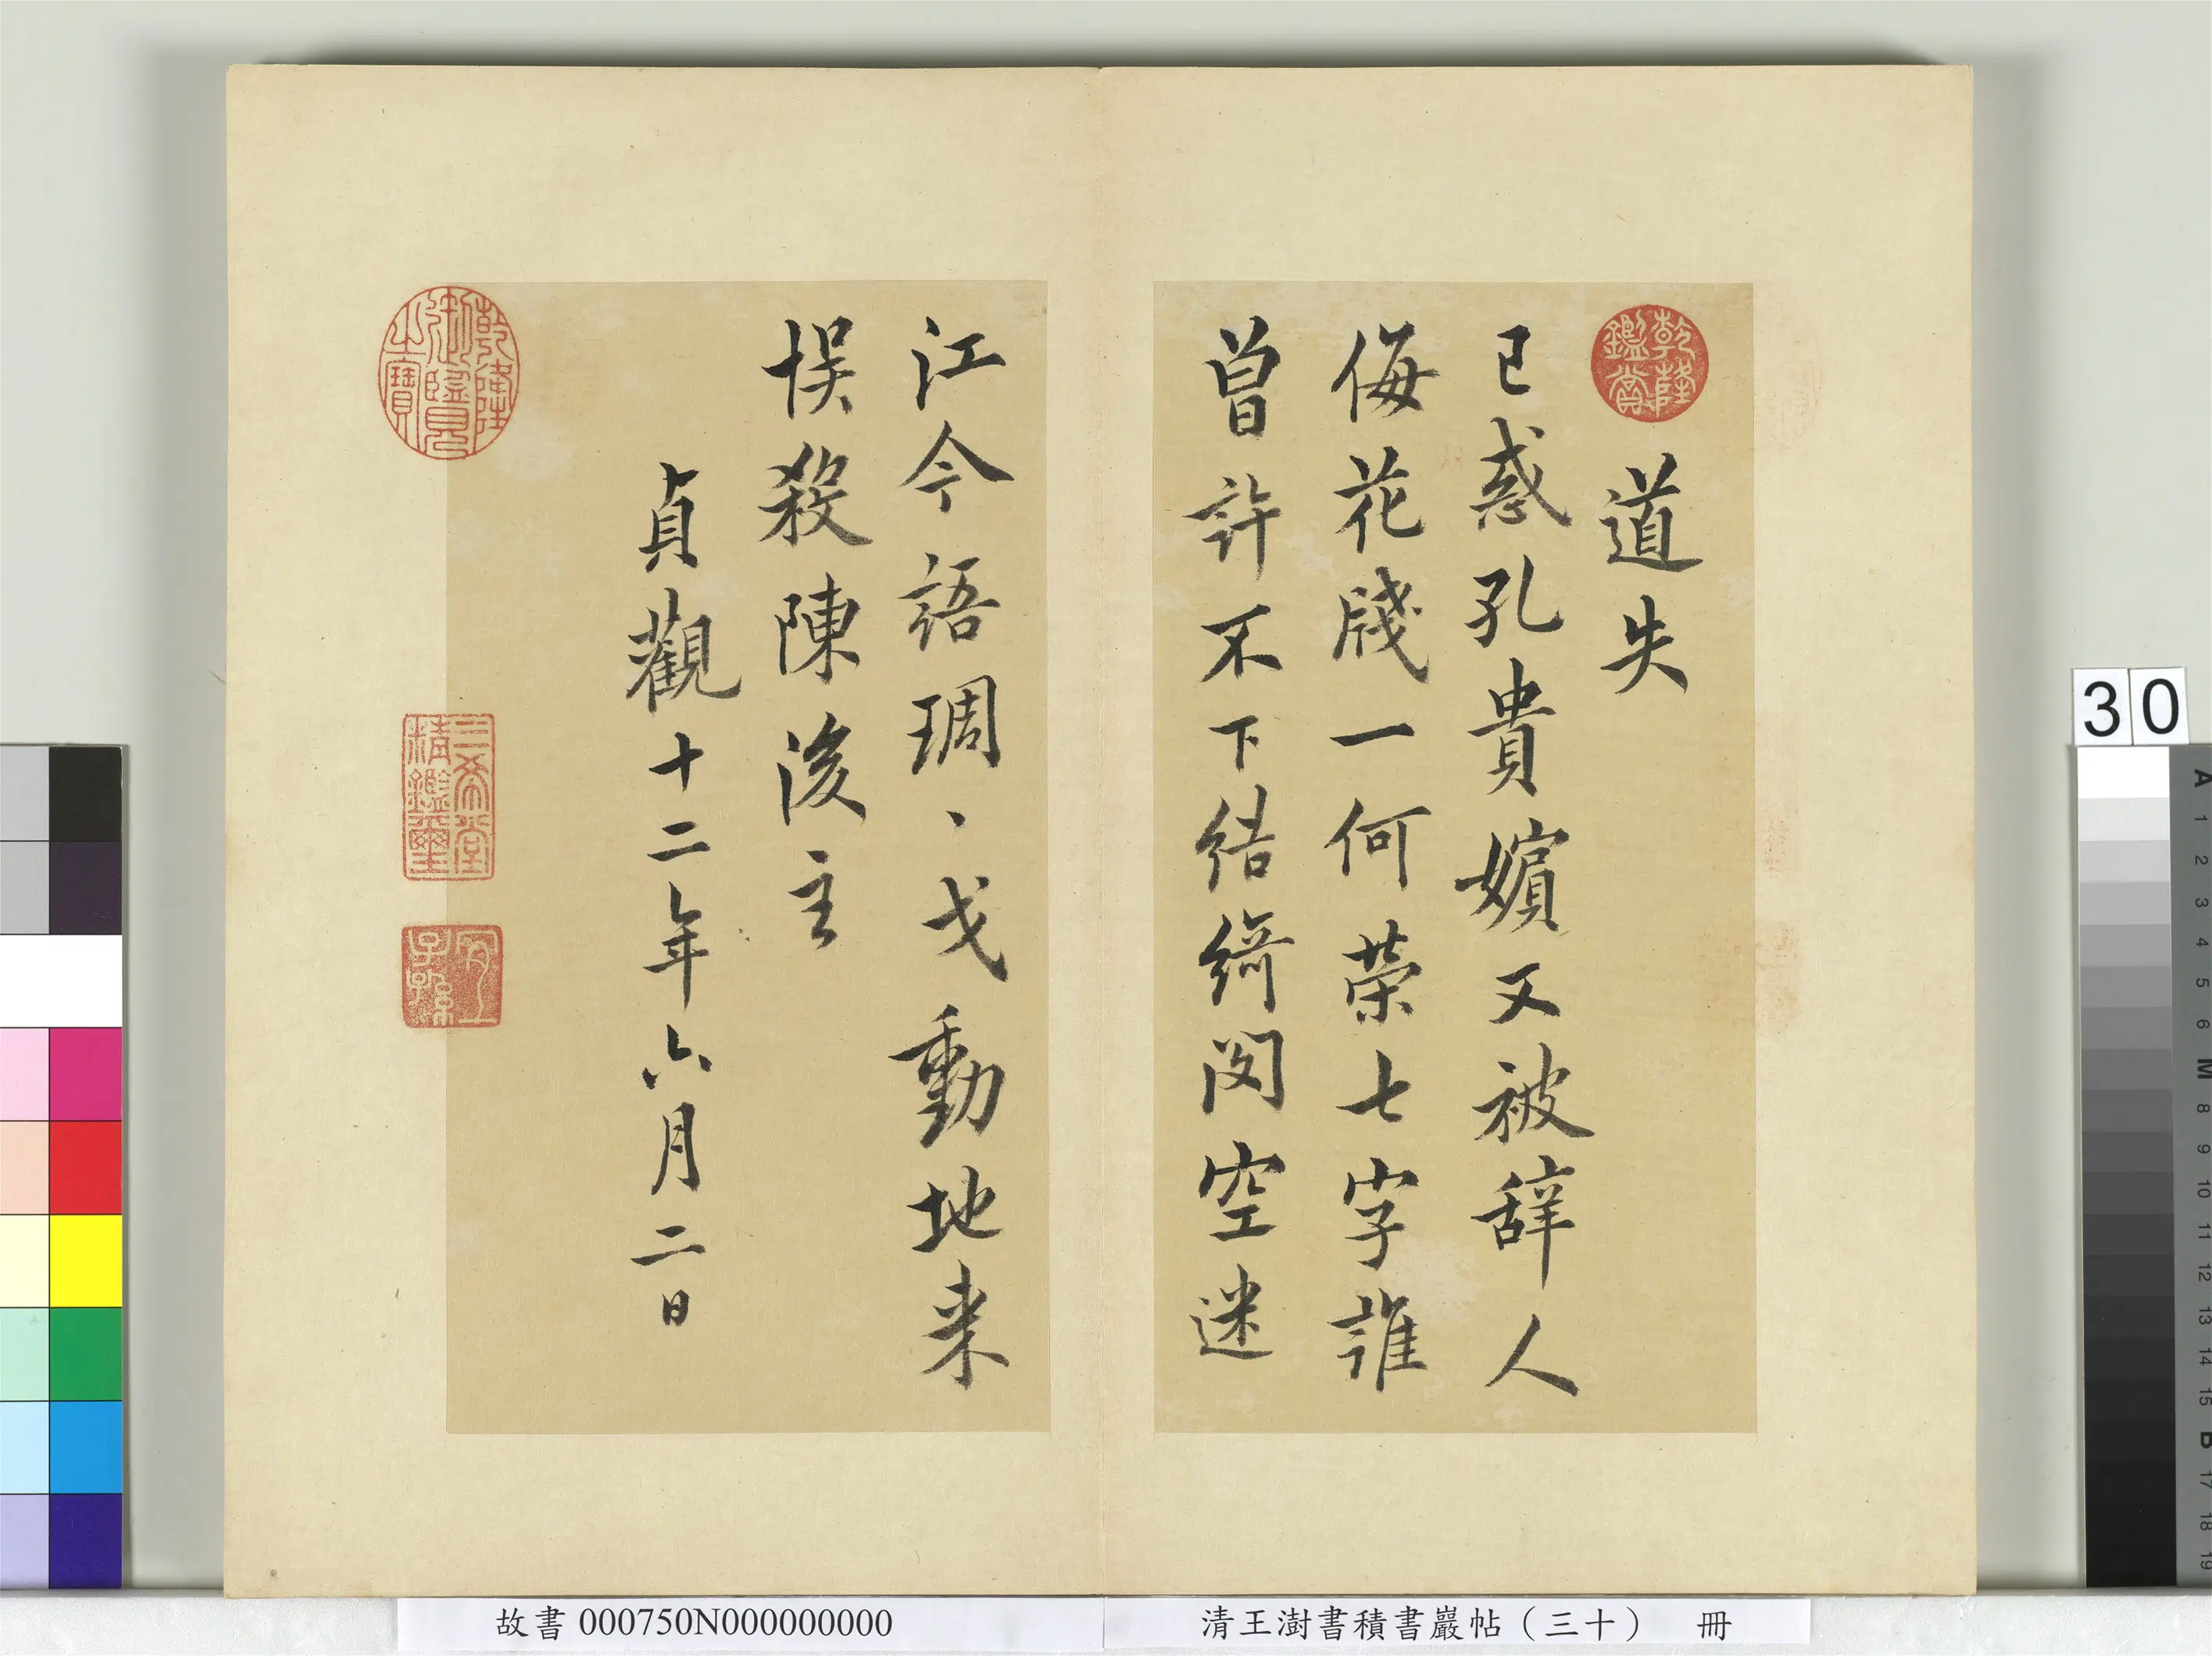 道失
已惑孔貴嬪又被辞人
侮花牋一何荣七字誰
曾許不下结綺閣空迷
江令語琱、戈動地来
悮殺陳後主
貞觀十二年六月二日
乾隆鑑賞
乾隆御覽之寶
三希堂精鑑璽
宜子孫
30
A
1
2
3
4
5
6
M
8
9
10
11
12
13
14
15
B
17
18
19
故書 000750N000000000
清王澍書積書巖帖（三十） 冊